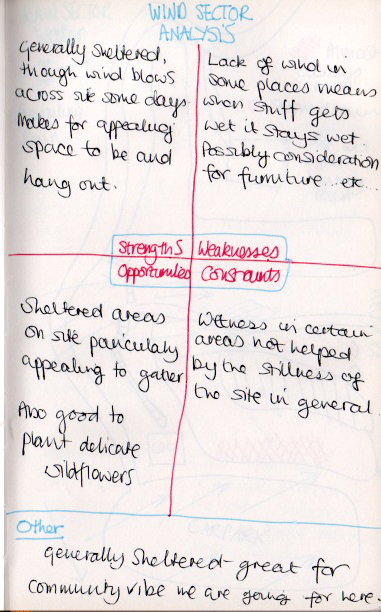 WIND SECTOR
ANALYSIS
Generally sheltered,
though wind blows
across site some days.
Makes for appealing
space to be and
hang out.
Lack of wind in
some places means
when stuff gets
wet it stays wet.
Possibly consideration
for furniture... etc...
Strengths
Weaknesses
Opportunities
Constraints
Sheltered areas
on site particularly
appealing to gather
Also good to
plant delicate
wildflowers
Wetness in certain
areas not helped
by the stillness of
the site in general.
Other
Generally sheltered - great for
community vibe we are going for here.